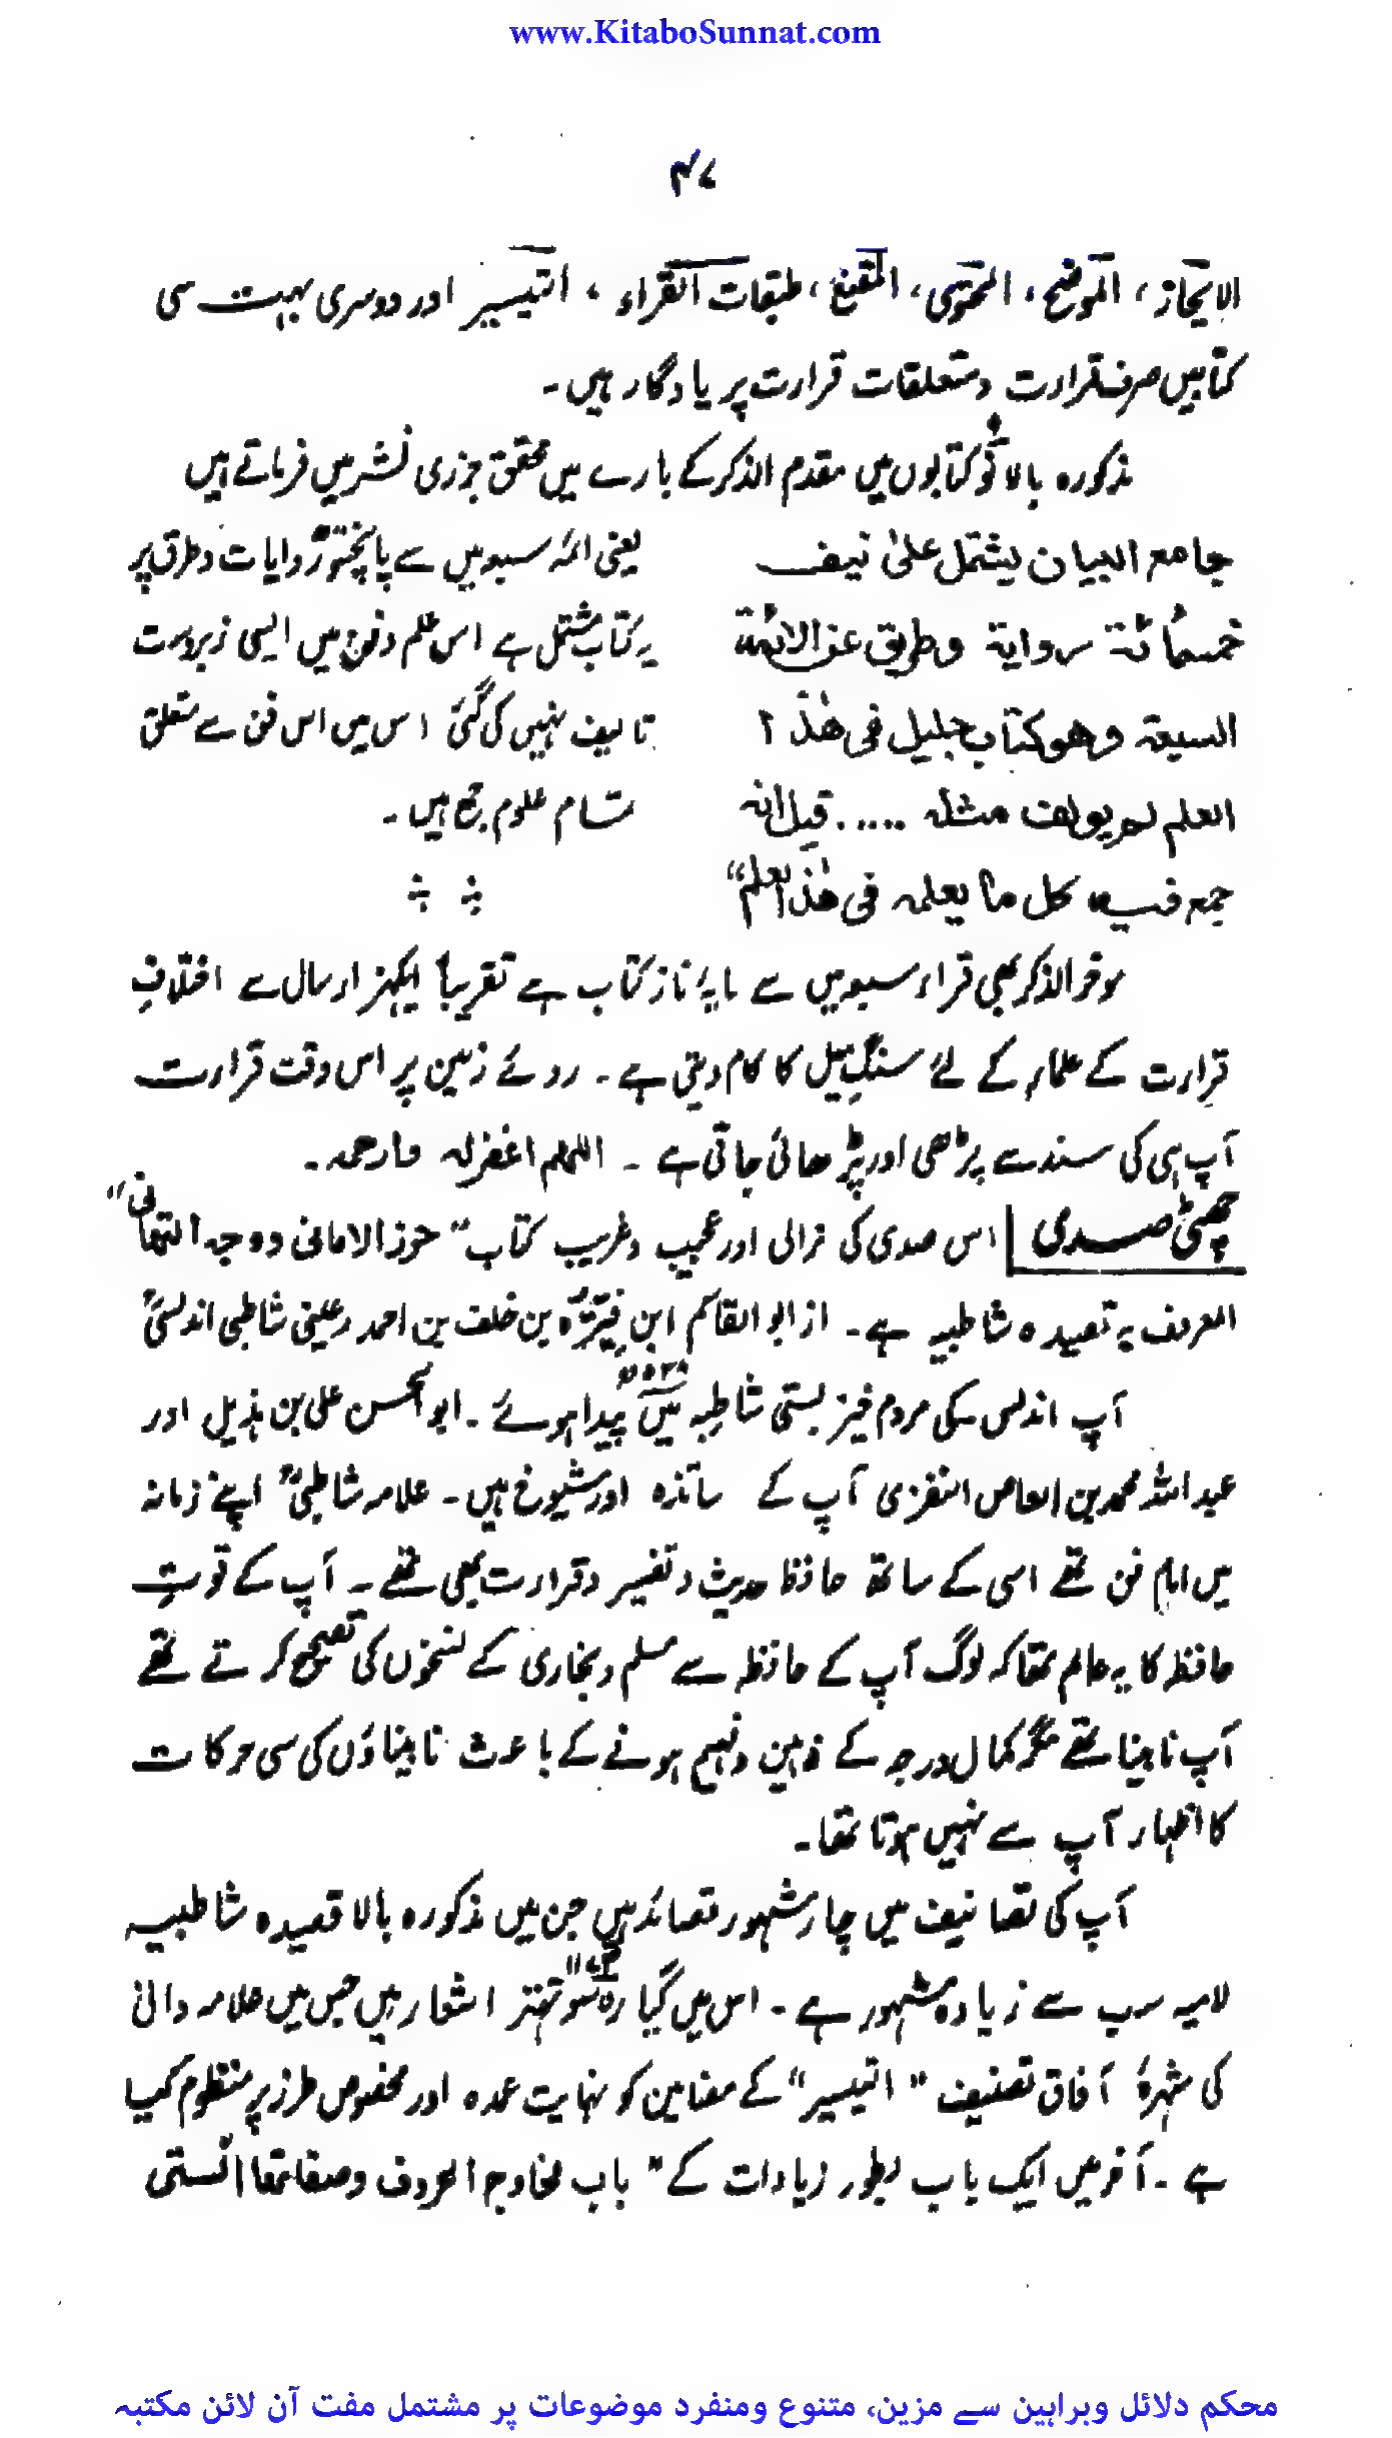 www.KitaboSunnat.com
۴۷
الایجاز، الموضح، المحتوی، المقنع، طبقات القراء، التیسیر اور دوسری بہت سی
کتابیں صرف قرارت ومتعلقات قرارت پر یادگار ہیں۔
مذکورہ بالا کتابوں میں مقدم الذکر کے بارے میں محقق جزری نشر میں فرماتے ہیں
جامع البیان یشتمل علیٰ نیف
خمسمائۃ روایۃ وطریق عن الائمۃ
السبعۃ وھو کتاب جلیل فی ھٰذا
العلم لم یولف مثلہ ..... قیل انہ
جمع فیہ کل ما یعلمہ فی ھٰذا العلم“
یعنی ائمہ سبعہ میں سے پانچسو روایات وطرق پر
یہ کتاب مشتمل ہے اس علم وفن میں ایسی زبردست
تالیف نہیں کی گئی اس میں اس فن سے متعلق
تمام علوم جمع ہیں۔
موخر الذکر بھی قراء سبعہ میں سے مایۂ ناز کتاب ہے تقریباً ایکہزار سال سے اختلافِ
قرارت کے علماء کے لئے سنگِ میل کا کام دیتی ہے۔ روئے زمین پر اس وقت قرارت
آپ ہی کی سند سے پڑھی اور پڑھائی جاتی ہے ۔ اللھم اغفرلہ وارحمہ۔
چھٹی صدی اس صدی کی نرالی اور عجیب وغریب کتاب ”حرز الامانی ووجہ التھانی“
المعروف بہ قصیدہ شاطبیہ ہے۔ از ابو القاسم ابن فیرّہ بن خلف بن احمد رعینی شاطبی اندلسیؒ
آپ اندلس کی مردم خیز بستی شاطبہ میں پیدا ہوئے۔ ابو الحسن علی بن ہذیل اور
عبد اللہ محمد بن العاص النفزی آپ کے ساتذہ اور شیوخ ہیں۔ علامہ شاطبیؒ اپنے زمانہ
میں امام فن تھے اسی کے ساتھ حافظ حدیث وتفسیر وقرارت بھی تھے۔ آپ کے قوتِ
حافظہ کا یہ عالم تھا کہ لوگ آپ کے حافظہ سے مسلم وبخاری کے نسخوں کی تصحیح کرتے تھے
آپ نابینا تھے مگر کمال درجہ کے ذہین وفہیم ہونے کے باعث نابیناؤں کی سی حرکات
کا اظہار آپ سے نہیں ہوتا تھا۔
آپ کی تصانیف میں چار مشہور قصائد ہیں جن میں مذکورہ بالا قصیدہ شاطبیہ
لامیہ سب سے زیادہ مشہور ہے۔ اس میں گیارہ سو تہتر اشعار ہیں جس میں علامہ دانی
کی شہرۂ آفاق تصنیف ”التیسیر“ کے مضامین کو نہایت عمدہ اور مخصوص طرز پر منظوم کیا
ہے۔ آخر میں ایک باب بطور زیادات کے ”باب مخارج الحروف وصفاتھا التی
محکم دلائل وبراہین سے مزین، متنوع ومنفرد موضوعات پر مشتمل مفت آن لائن مکتبہ